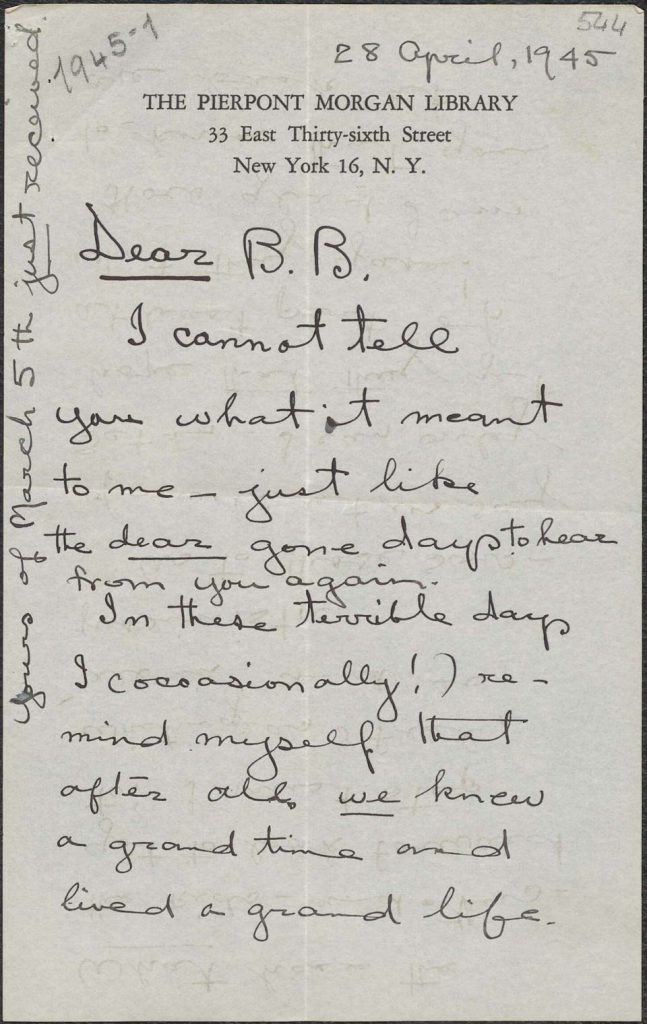 544
1945-1
28 April, 1945
THE PIERPONT MORGAN LIBRARY
33 East Thirty-sixth Street
New York 16, N. Y.
Dear B. B.
I cannot tell
you what it meant
to me – just like
the dear gone days to hear
from you again.
In these terrible days
I (occasionally!) re-
mind myself that
after all, we knew
a grand time and
lived a grand life.
Yours of March 5th just received.